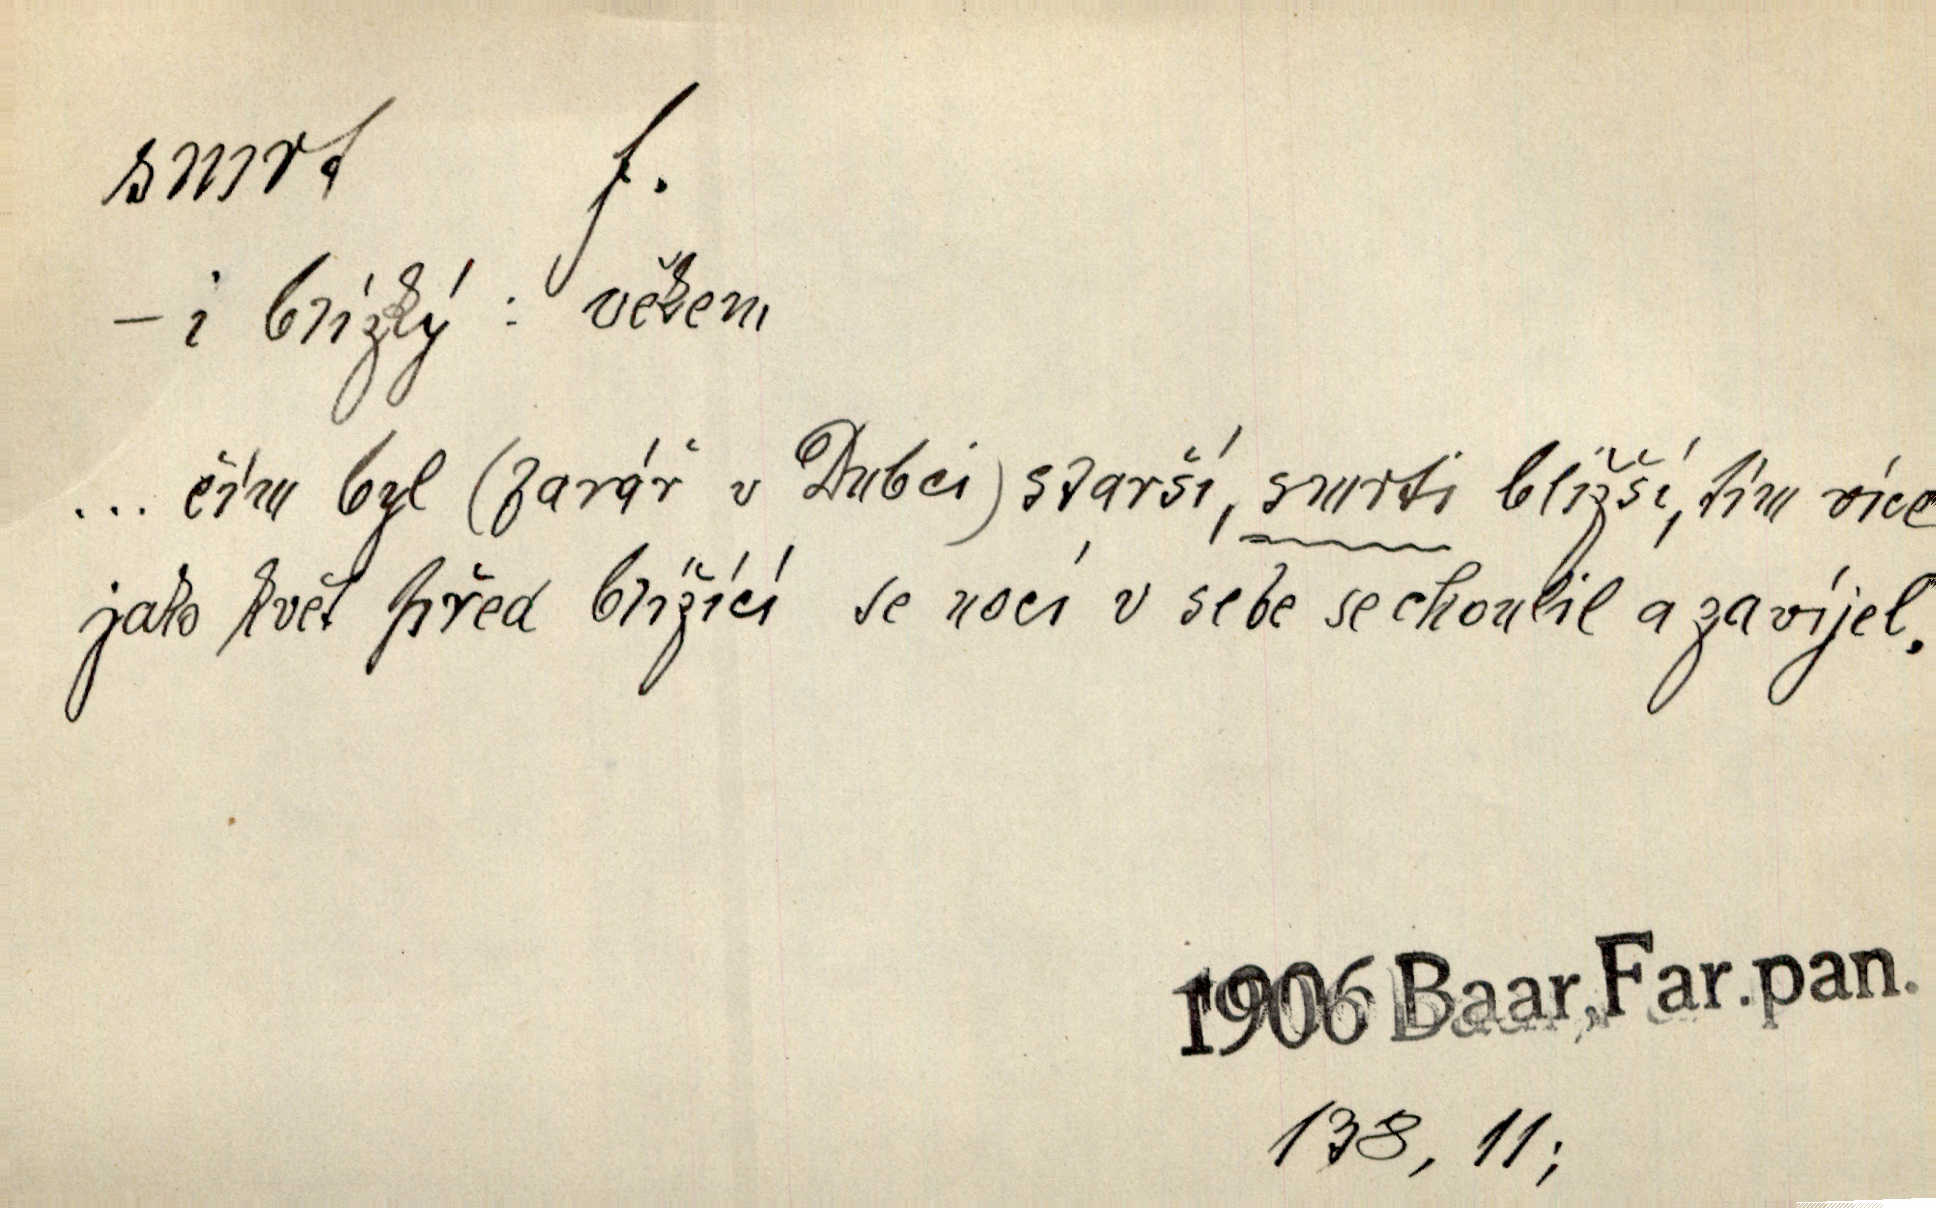 smrt f.
– i blízký : věkem
... čím byl (farář v Dubci) starší, smrti bližší, tím více
jako květ před blížící se nocí v sebe se choulil a zavíjel.
1906 Baar, Far. pan.
138, 11;